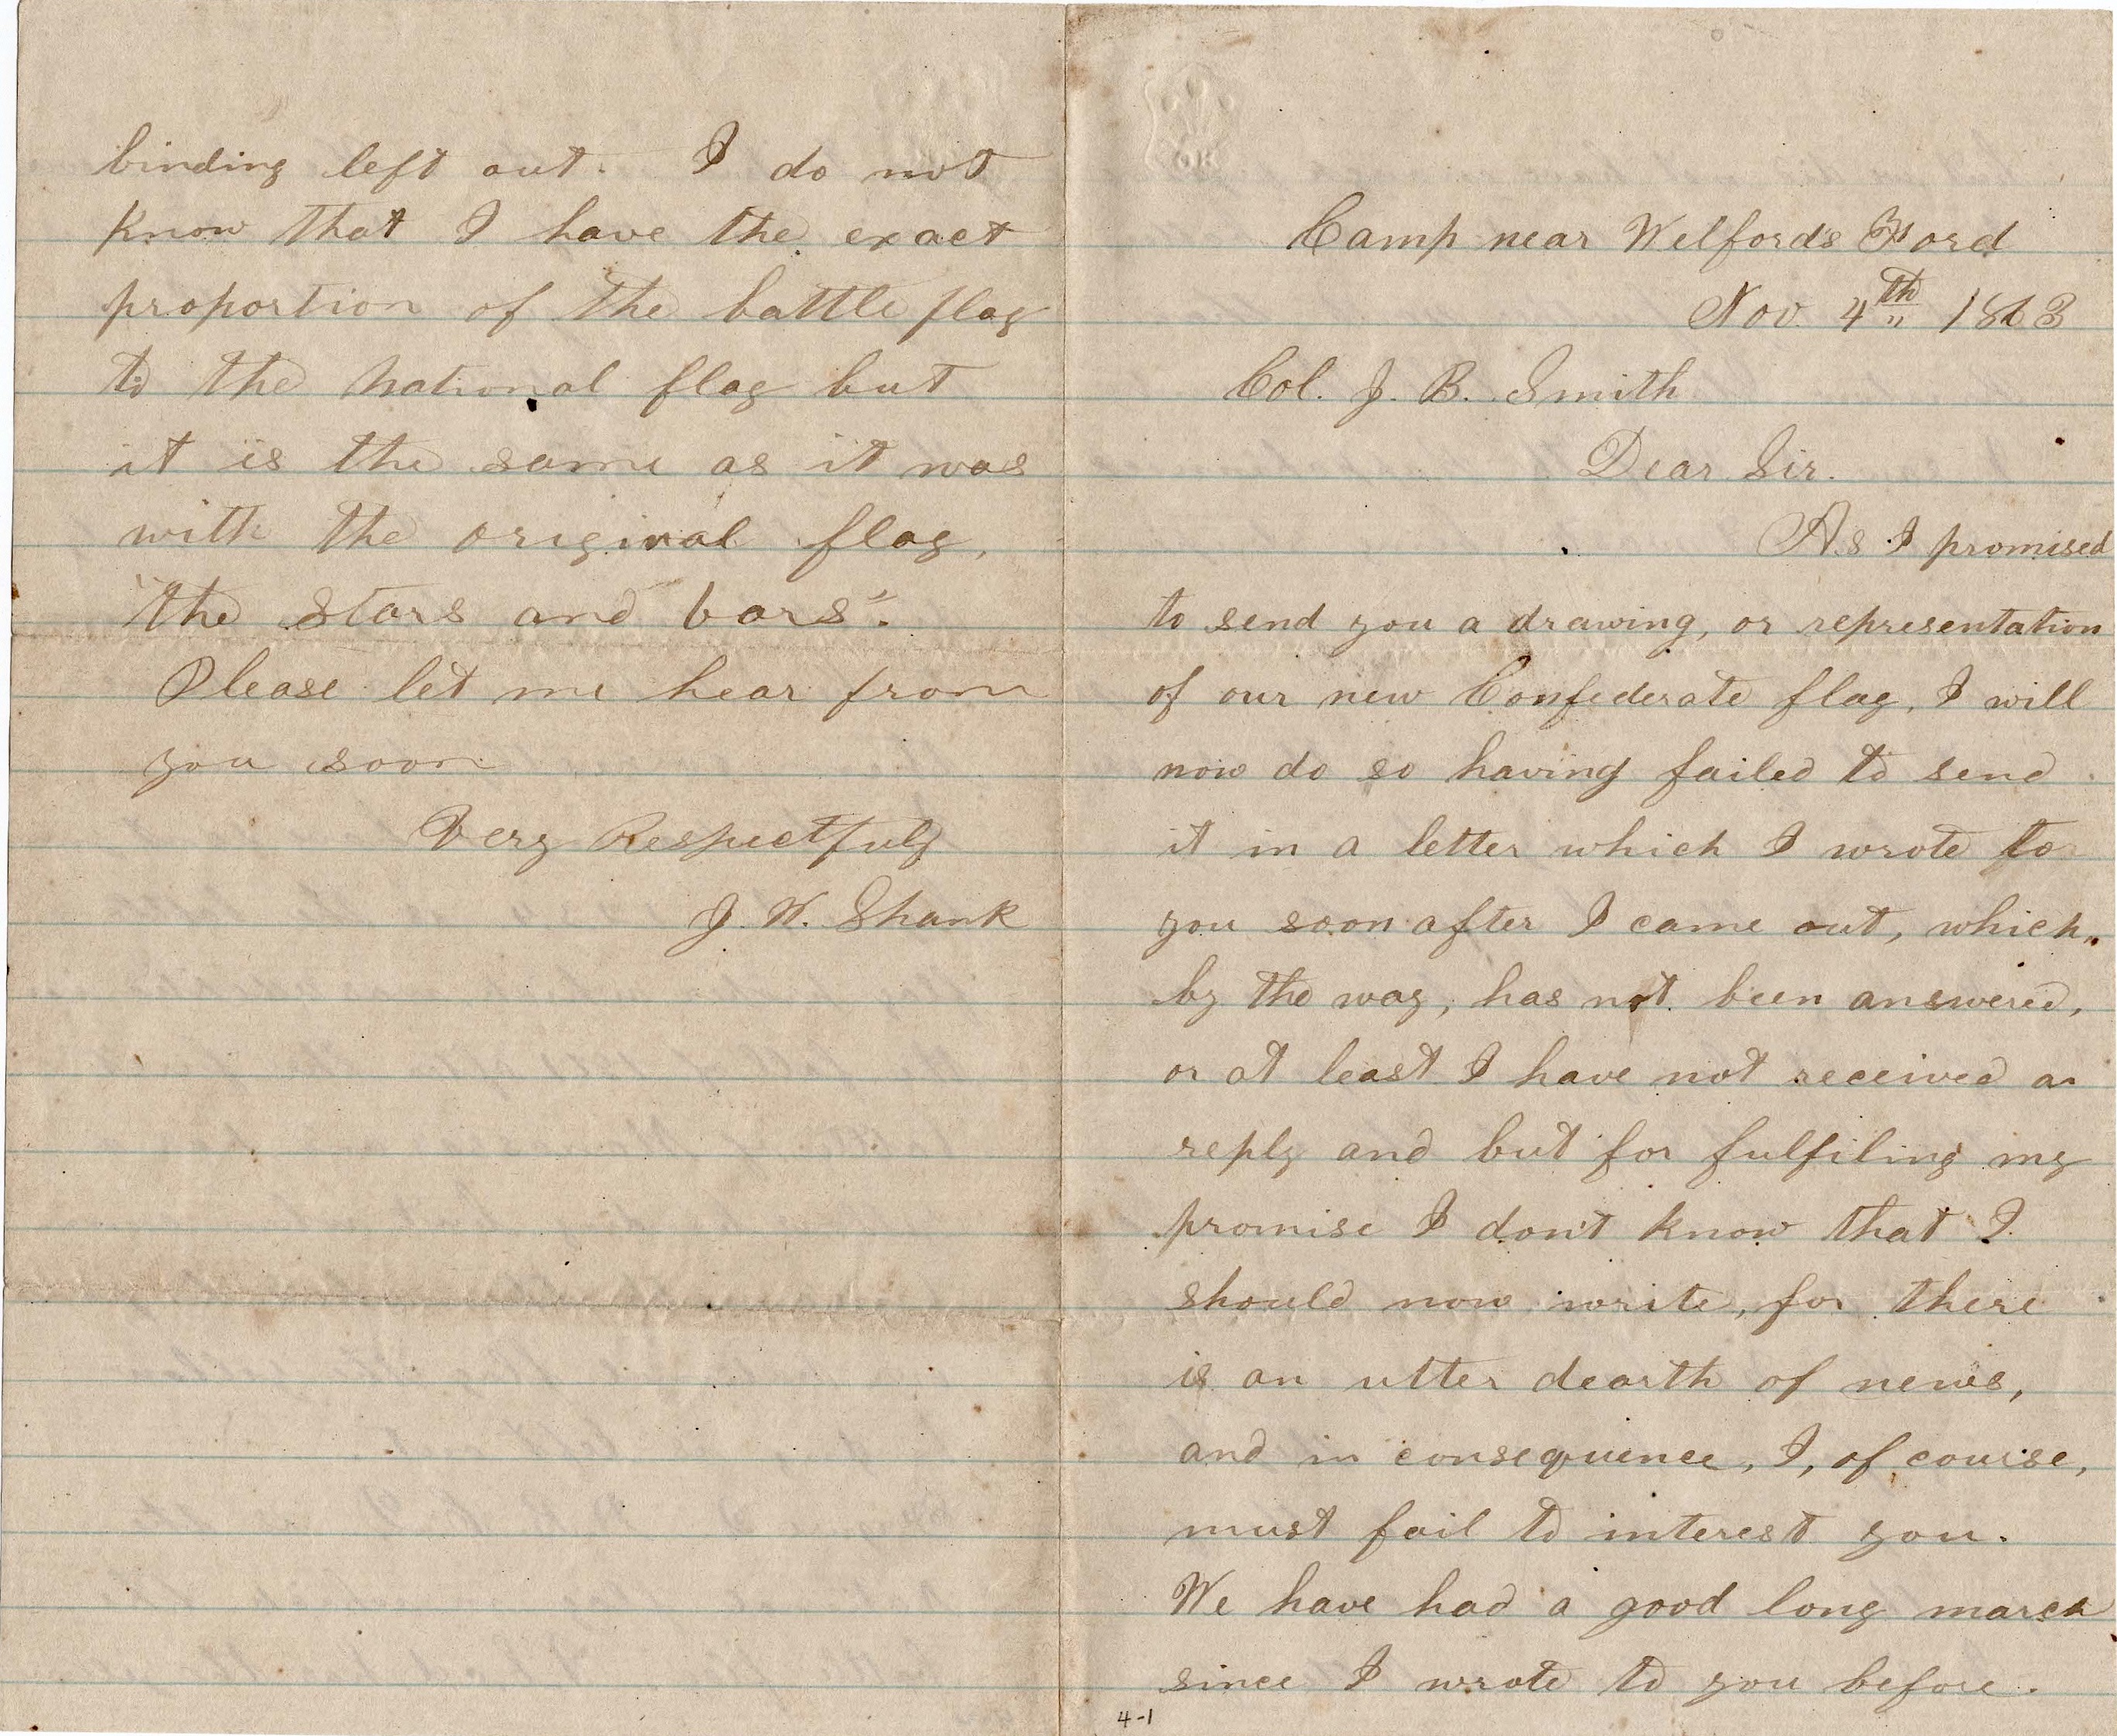 Camp near Welford's Ford
Nov. 4th 1863
Col. J. B. Smith
Dear Sir.
As I promised
to send you a drawing, or representation
of our new Confederate flag, I will
now do so having failed to send
it in a letter which I wrote to
you soon after I came out, which,
by the way, has not been answered,
or at least I have not received a
reply and but for fulfiling my
promise I don't know that I
should now write, for there
is an utter dearth of news,
and in consequence, I, of course,
must fail to interest you.
We have had a good long march
since I wrote to you before.
4-1
binding left out. I do not
know that I have the exact
proportion of the battle flag
to the national flag but
it is the same as it was
with the original flag,
"the stars and bars".
Please let me hear from
you soon
Very Respectfuly
J. W. Shank